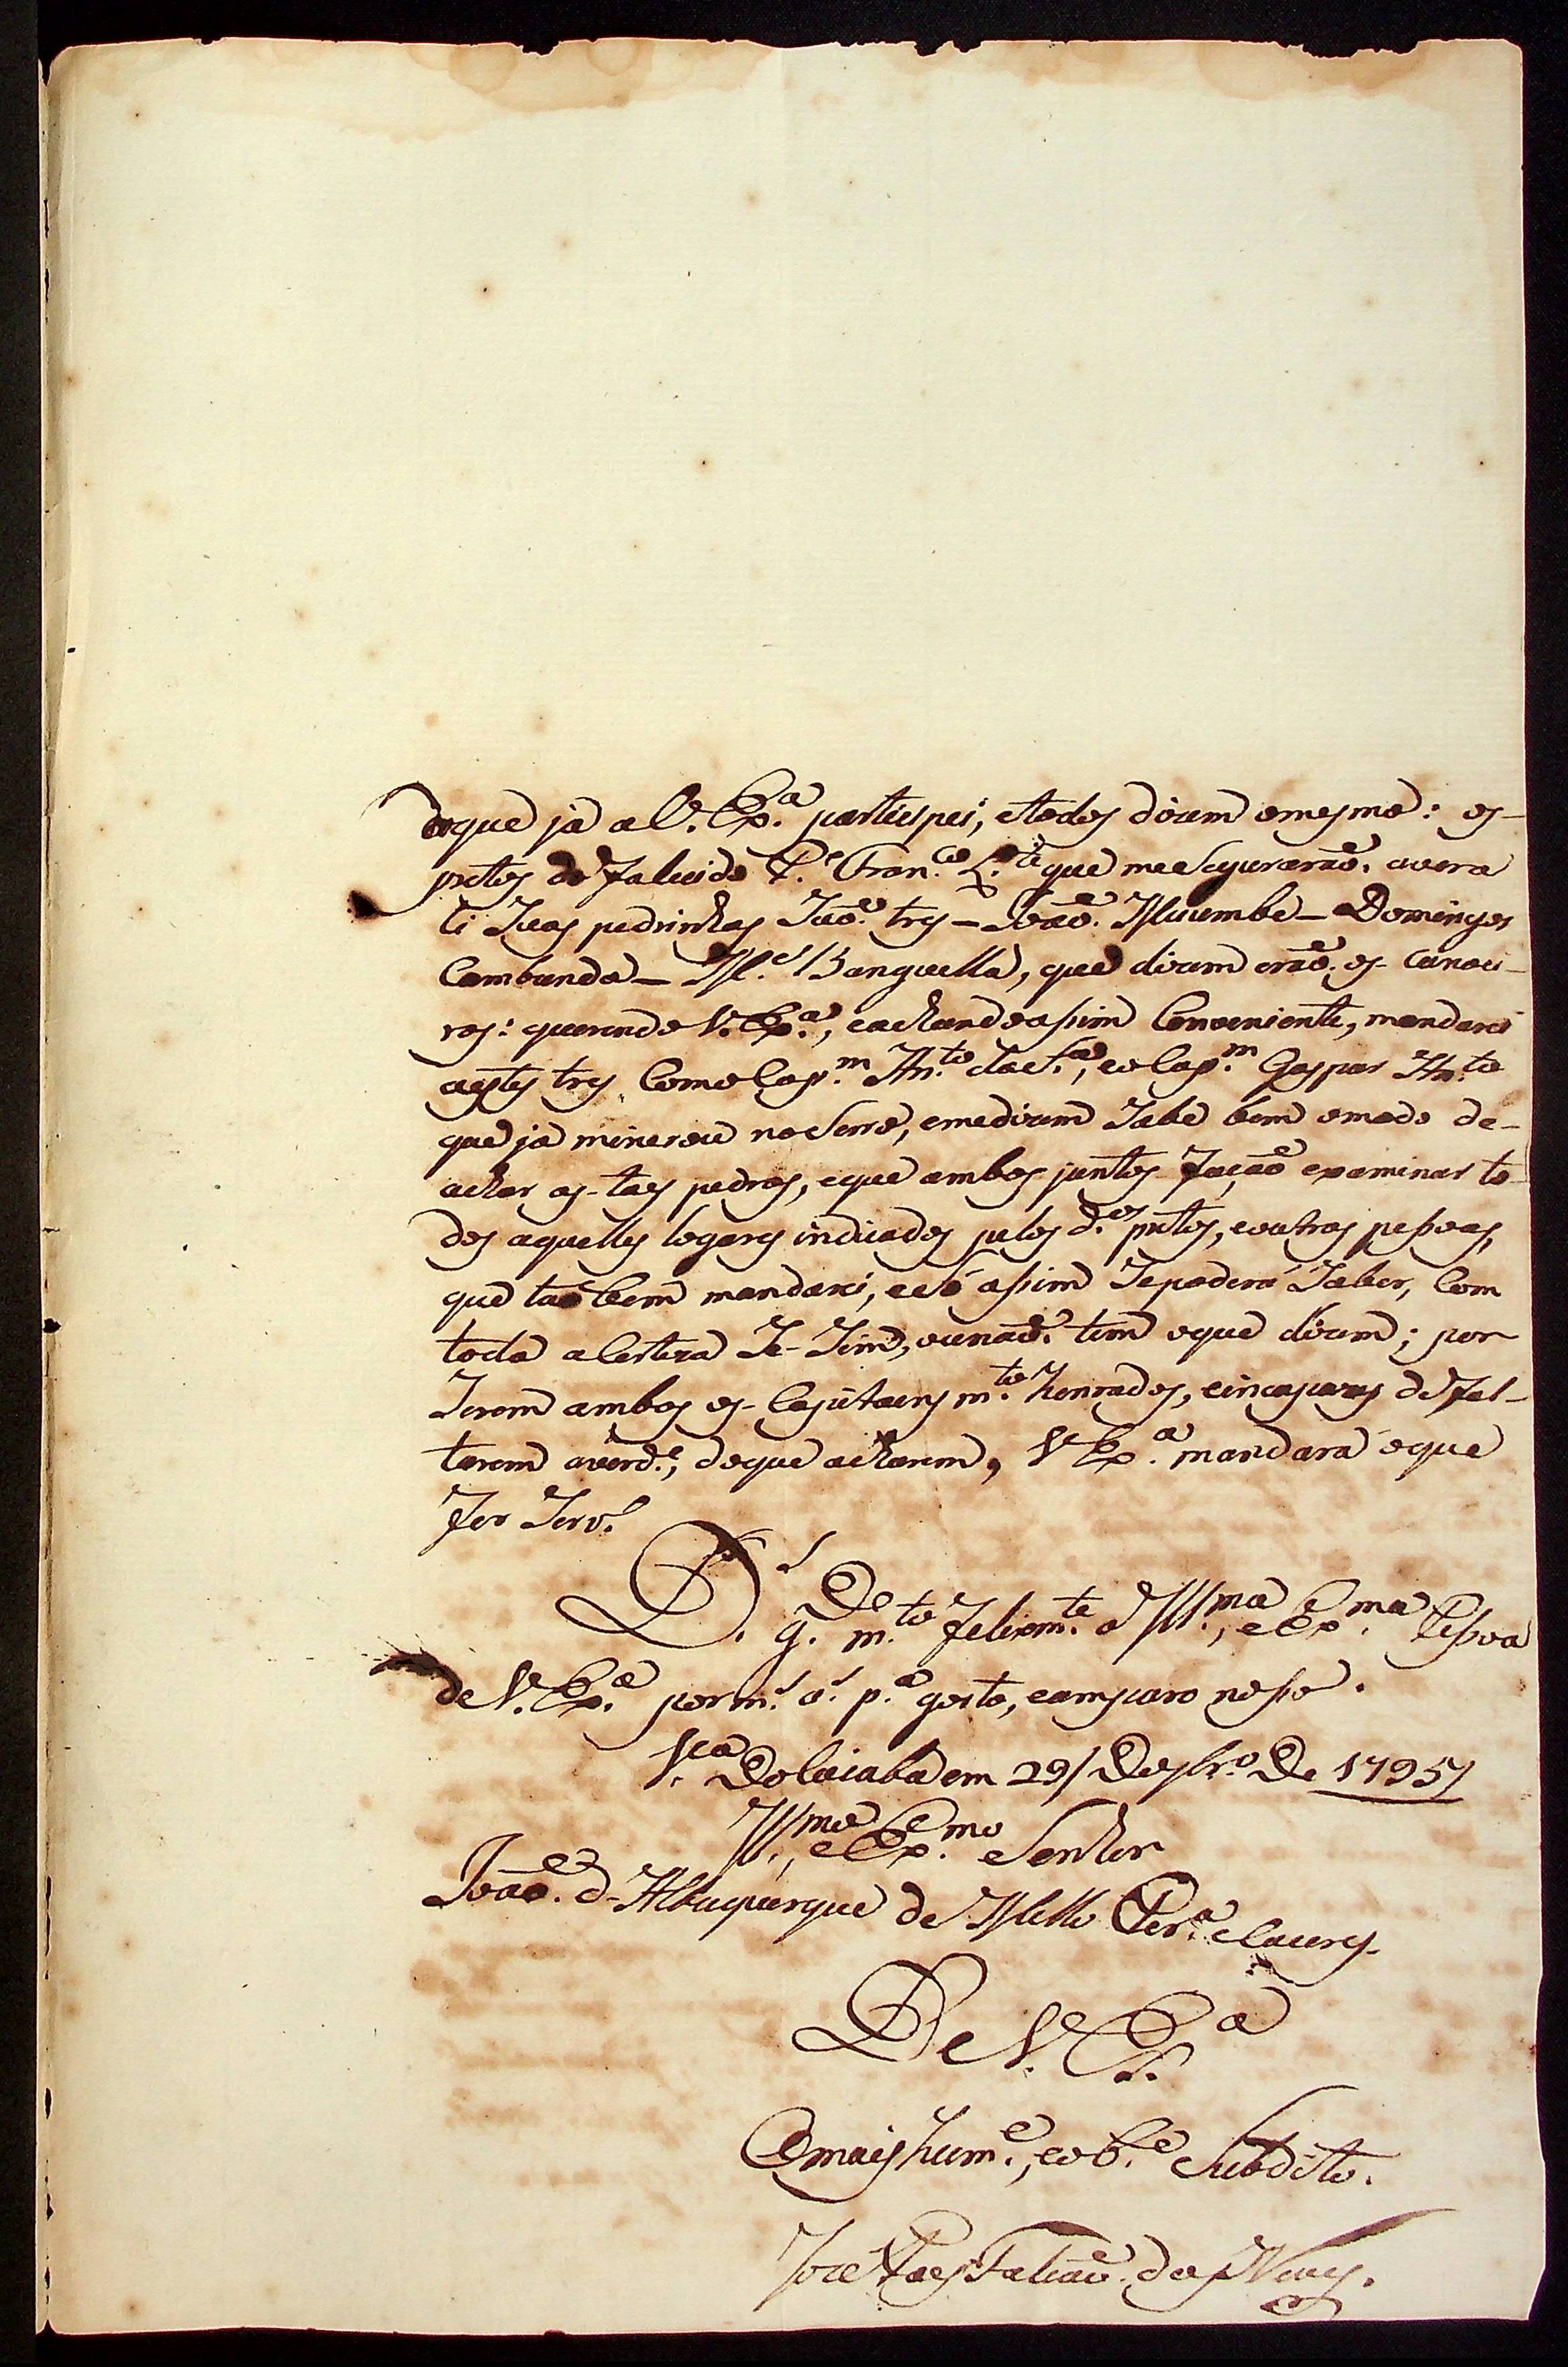 doque já a V. Ex.ª partiçipei, etodos dizem omesmo: os-
pretos do falecido P.e Fran.co L.te que meSegurarão. avera
li Suas pedrinhas Saõ. tres – Joaõ. Muumbe – Domingos
Cambunda – M.el Banguella, que dizem eraõ. os- Canoei-
ros: querendo V. Ex.ª, eachandoaSsim Conveniente, mandarei
aestes tres Como Cap.m An.to daS.ª, eo Cap.m Gaspar An.to
que já minerou noSerro, emedizem Sabe bem omodo de-
achar as-taes pedras, eque ambos juntos façaõ examinar to-
dos aquelles logares indicados pelos d.os pretos, eoutras peSsoas,
que taõbem mandarei, eeSó aSsim Sepoderá Saber, Com
toda aCerteza Se-Sim, ounaõ. tem oque dizem; por
Serem ambos os-Capitaens m.to honrados, eincapazes defal-
tarem averd.e, doque acharem, V. Ex.ª mandará oque
for Serv.º
D.s g.de m.to felizm.te a Ill.ma, eEx.ma PeSsoa
de V. Ex.ª por m.s a.s p.ª gosto, eamparo noSso.
V.ª DoCuiaba em 29/ Dezbr.º De 1795/
Ill.mo, eEx.mo Senhor
Joaõ. d-Albuquerque de Mello Per.ª eCaceres-
De V. Ex.ª
Omais hum.e, eob.e Subdito.
Joze Paes Falcaõ. das Neves.